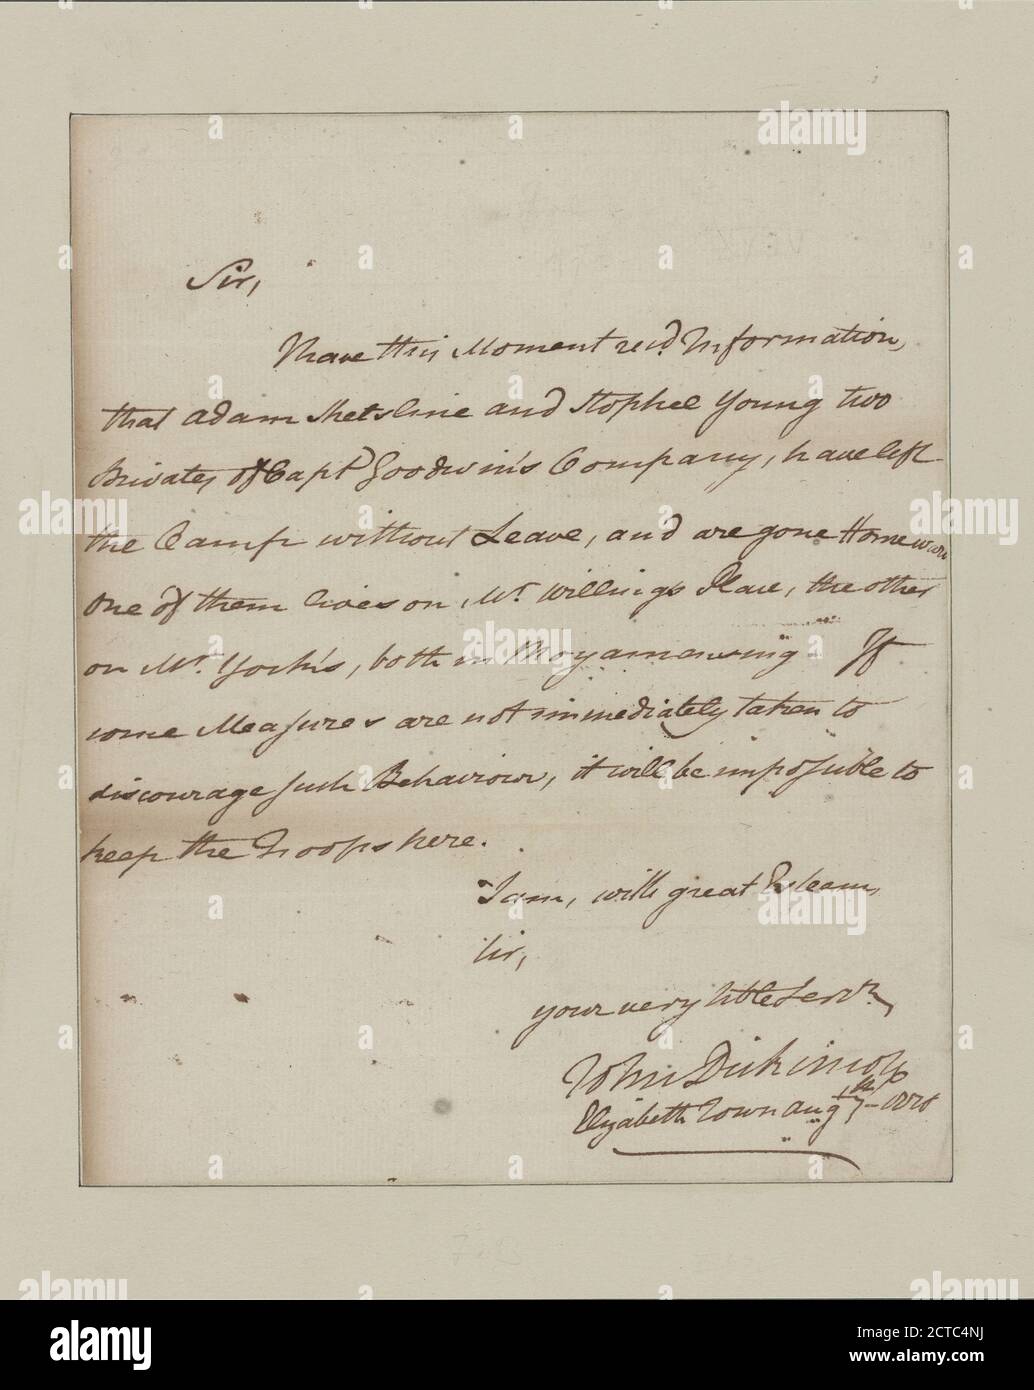 Sir,
I have this Moment recd. Information,
that Adam Metsline and Stophel Young two
Privates of Capt Goodwin's Company, have left
the Camp without Leave, and are gone Home
one of them lives on Mr. Willing's Place, the other
on Mr. York's, both in Moyamensing If
some Measures are not immediately taken to
discourage such Behaviour, it will be impossible to
keep the Troops here.
I am, with great Esteem,
Sir,
your very hble Servt.
John Dickinson
Elizabeth Town Aug 7th
alamy
a
alamy
Image ID: 2CTC4NJ
www.alamy.com